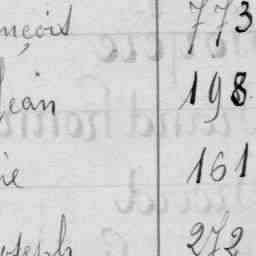 nçois 773
Jean 198
ie 161
oseph 272